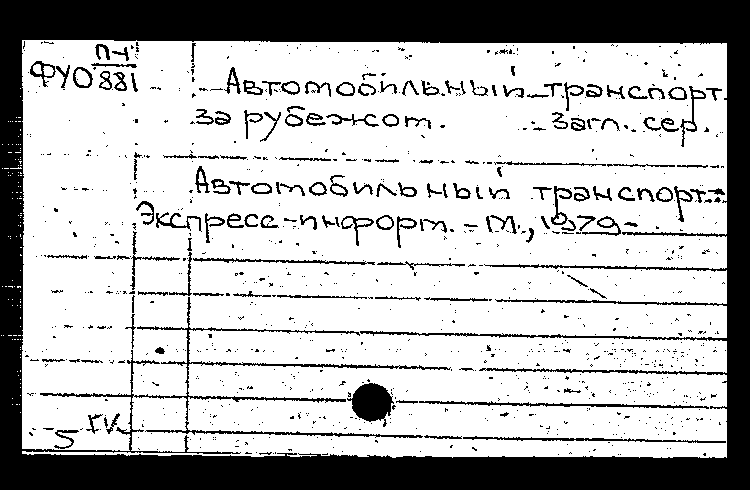 П-Ч
ФУО 881
Автомобильный транспорт
за рубежом. Загл. сер.
Автомобильный транспорт:
Экспресс-информ. - М., 1979-